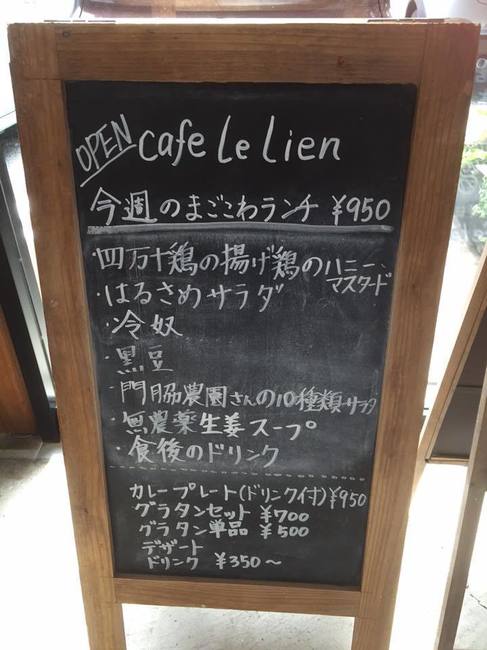 OPEN cafe Le Lien
今週のまごこわランチ ¥950
・四万十鶏の揚げ鶏のハニーマスタード
・はるさめサラダ
・冷奴
・黒豆
・門脇農園さんの10種類サラダ
・無農薬生姜スープ
・食後のドリンク
カレープレート(ドリンク付)¥950
グラタンセット ¥700
グラタン単品 ¥500
デザート
ドリンク ¥350〜